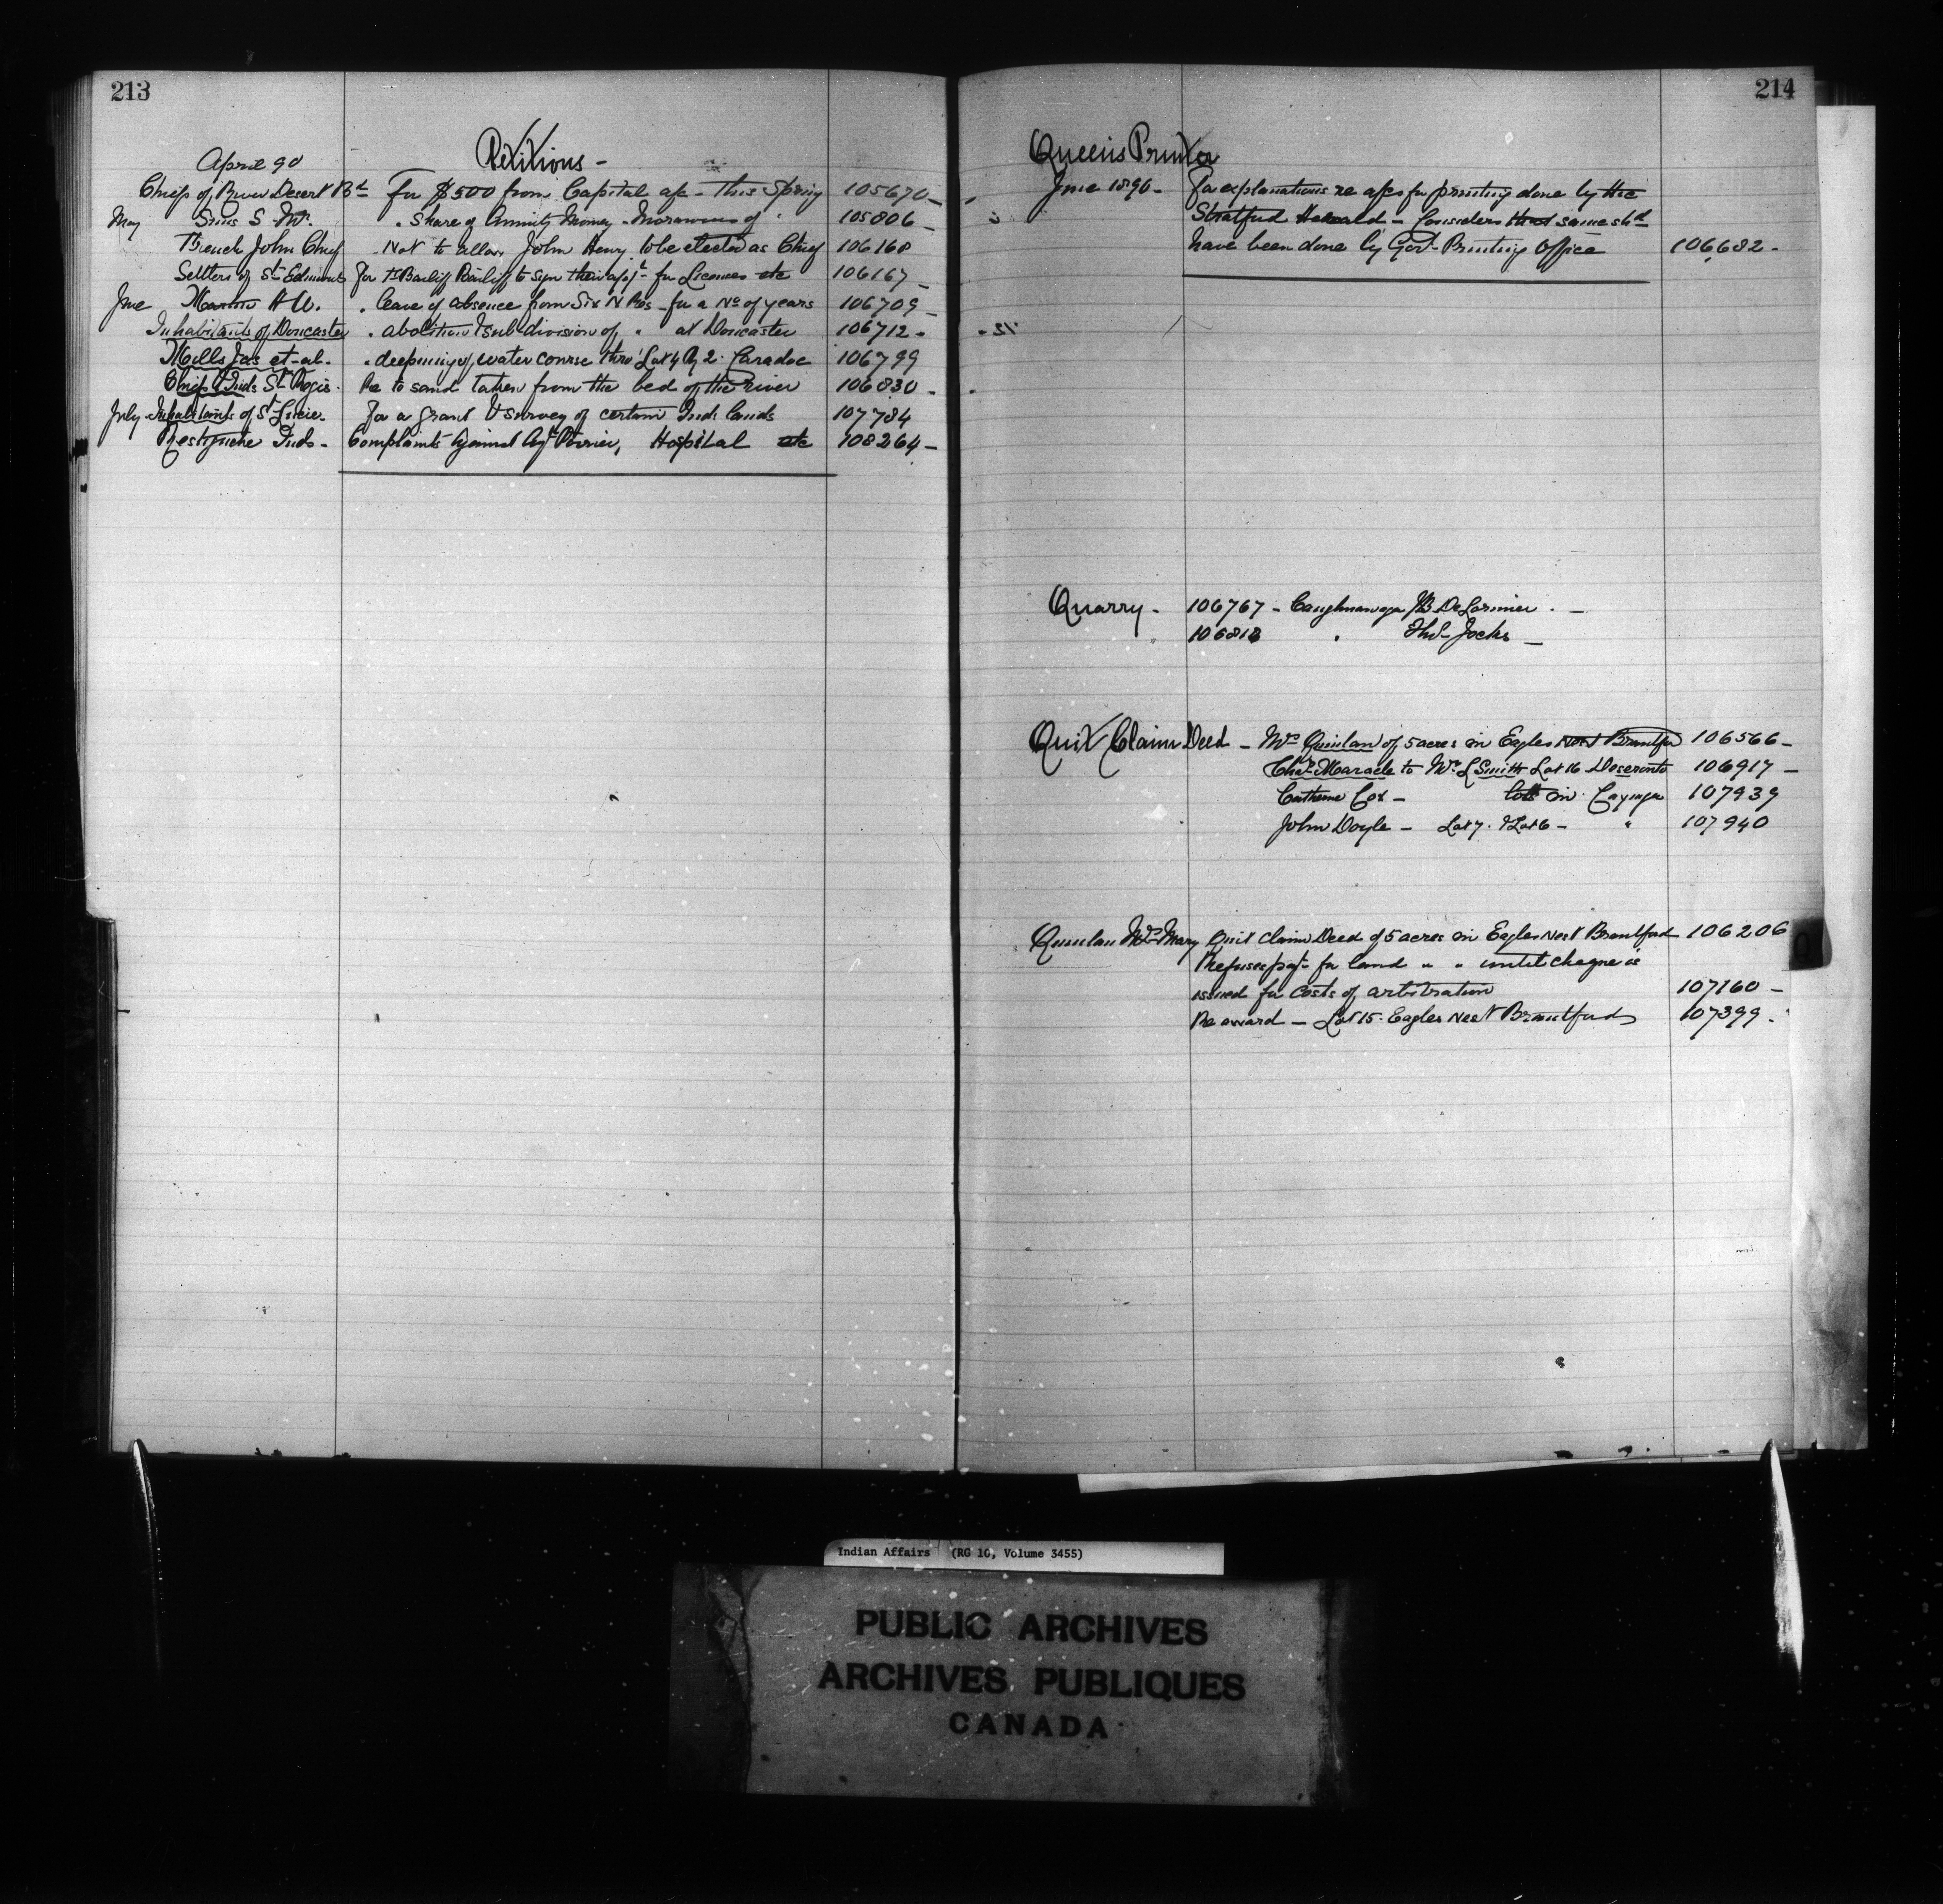 213
Petitions -
April 90
Chiefs of River Desert Bd For $500 from Capital a/c - this Spring 105670 -
May Sims S Mr. " Share of Annuity Money - Moravians of 105806 -
French John Chief " Not to allow John Henry to be elected as Chief 106168
Settlers of St Edmunds For Bailiff to sign their for Licenses etc 106167 -
June Martin A W. " leave of absence from Six N Res - for a No of years 106709 -
Inhabitants of Doncaster " abolition & sub-division of " at Doncaster 106712 -
Mills Jas et-al- " deepening of water course thro' Lot 4 Rg 2. Caradoc 106799
Chiefs & Inds St Regis. Re to sand taken from the bed of the river 106830 -
July Inhabitants of St For a grant & survey of certain Ind: lands 107784
Restigouche Inds - Complaints against Agt Poirier, Hospital etc 108264 -
214
Queen's Printer
June 1890 - For explanations re a/cs for printing done by the
Stratford Herald - Considers that same shd
have been done by Govt Printing Office 106682 -
Quarry - 106767 - Caughnawaga JB DeLorimier -
106818 " Thos Jocks -
Quit Claim Deed - Mrs Quinlan of 5 acres in Eagles Nest Brantford 106566 -
Chas Maracle to Mr L Smith Lot 16 Deseronto 106917 -
Catherine Cox - lots in Cayuga 107939
John Doyle - Lot 7. & Lot 6 - " 107940
Quinlan Mrs Mary Quit Claim Deed of 5 acres in Eagles Nest Brantford 106206
Refuses payt for land " " until cheque is
issued for costs of arbitration 107160 -
Re award - Lot 15. Eagles Nest Brantford 107399 -
Indian Affairs (RG 10, Volume 3455)
PUBLIC ARCHIVES
ARCHIVES PUBLIQUES
CANADA